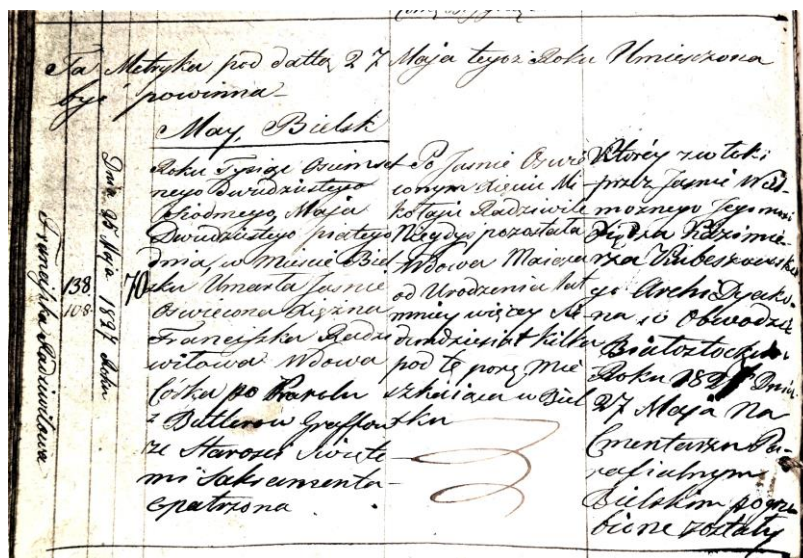 Ta Metryka pod dattą 27 Maja tegoż Roku Umieszczona
być powinna
May, Bielsk
Franciszka Radziwiłowa
138
108
Dnia 25 Maja 1827 Roku
70
Roku Tysiąc Ośmset
nego Dwudziestego
Siodmego, Maja
Dwudziestego piątego
dnia, w Mieście Biel
sku Umarła Jaśnie
Oświecona Xiężna
Franciszka Radzi
wiłowa Wdowa
Córka po Karolu
z Butlerow Graffow
ze Starości Święte
mi Sakramenta
opatrzona
Po Jaśnie Oświe
conym Xięciu Mi
kołaju Radziwile
Niegdys pozostała
Wdowa Maiąca
od Urodzenia lat
mniey więcey Si
dmdziesiąt kilka
pod tę porę mie
szkaiąca w Biel
sku
Którey zwłoki
przez Jaśnie Wiel
możnego Jegomości
Xiędza Kazimie
rza Kubeszowskie
go Archi Dyako
na w Obwodzie
Białostockim
Roku 1827 Dnia
27 Maja na
Cmentarzu Pa-
rafialnym
Bielskim pogrze
bione zostały